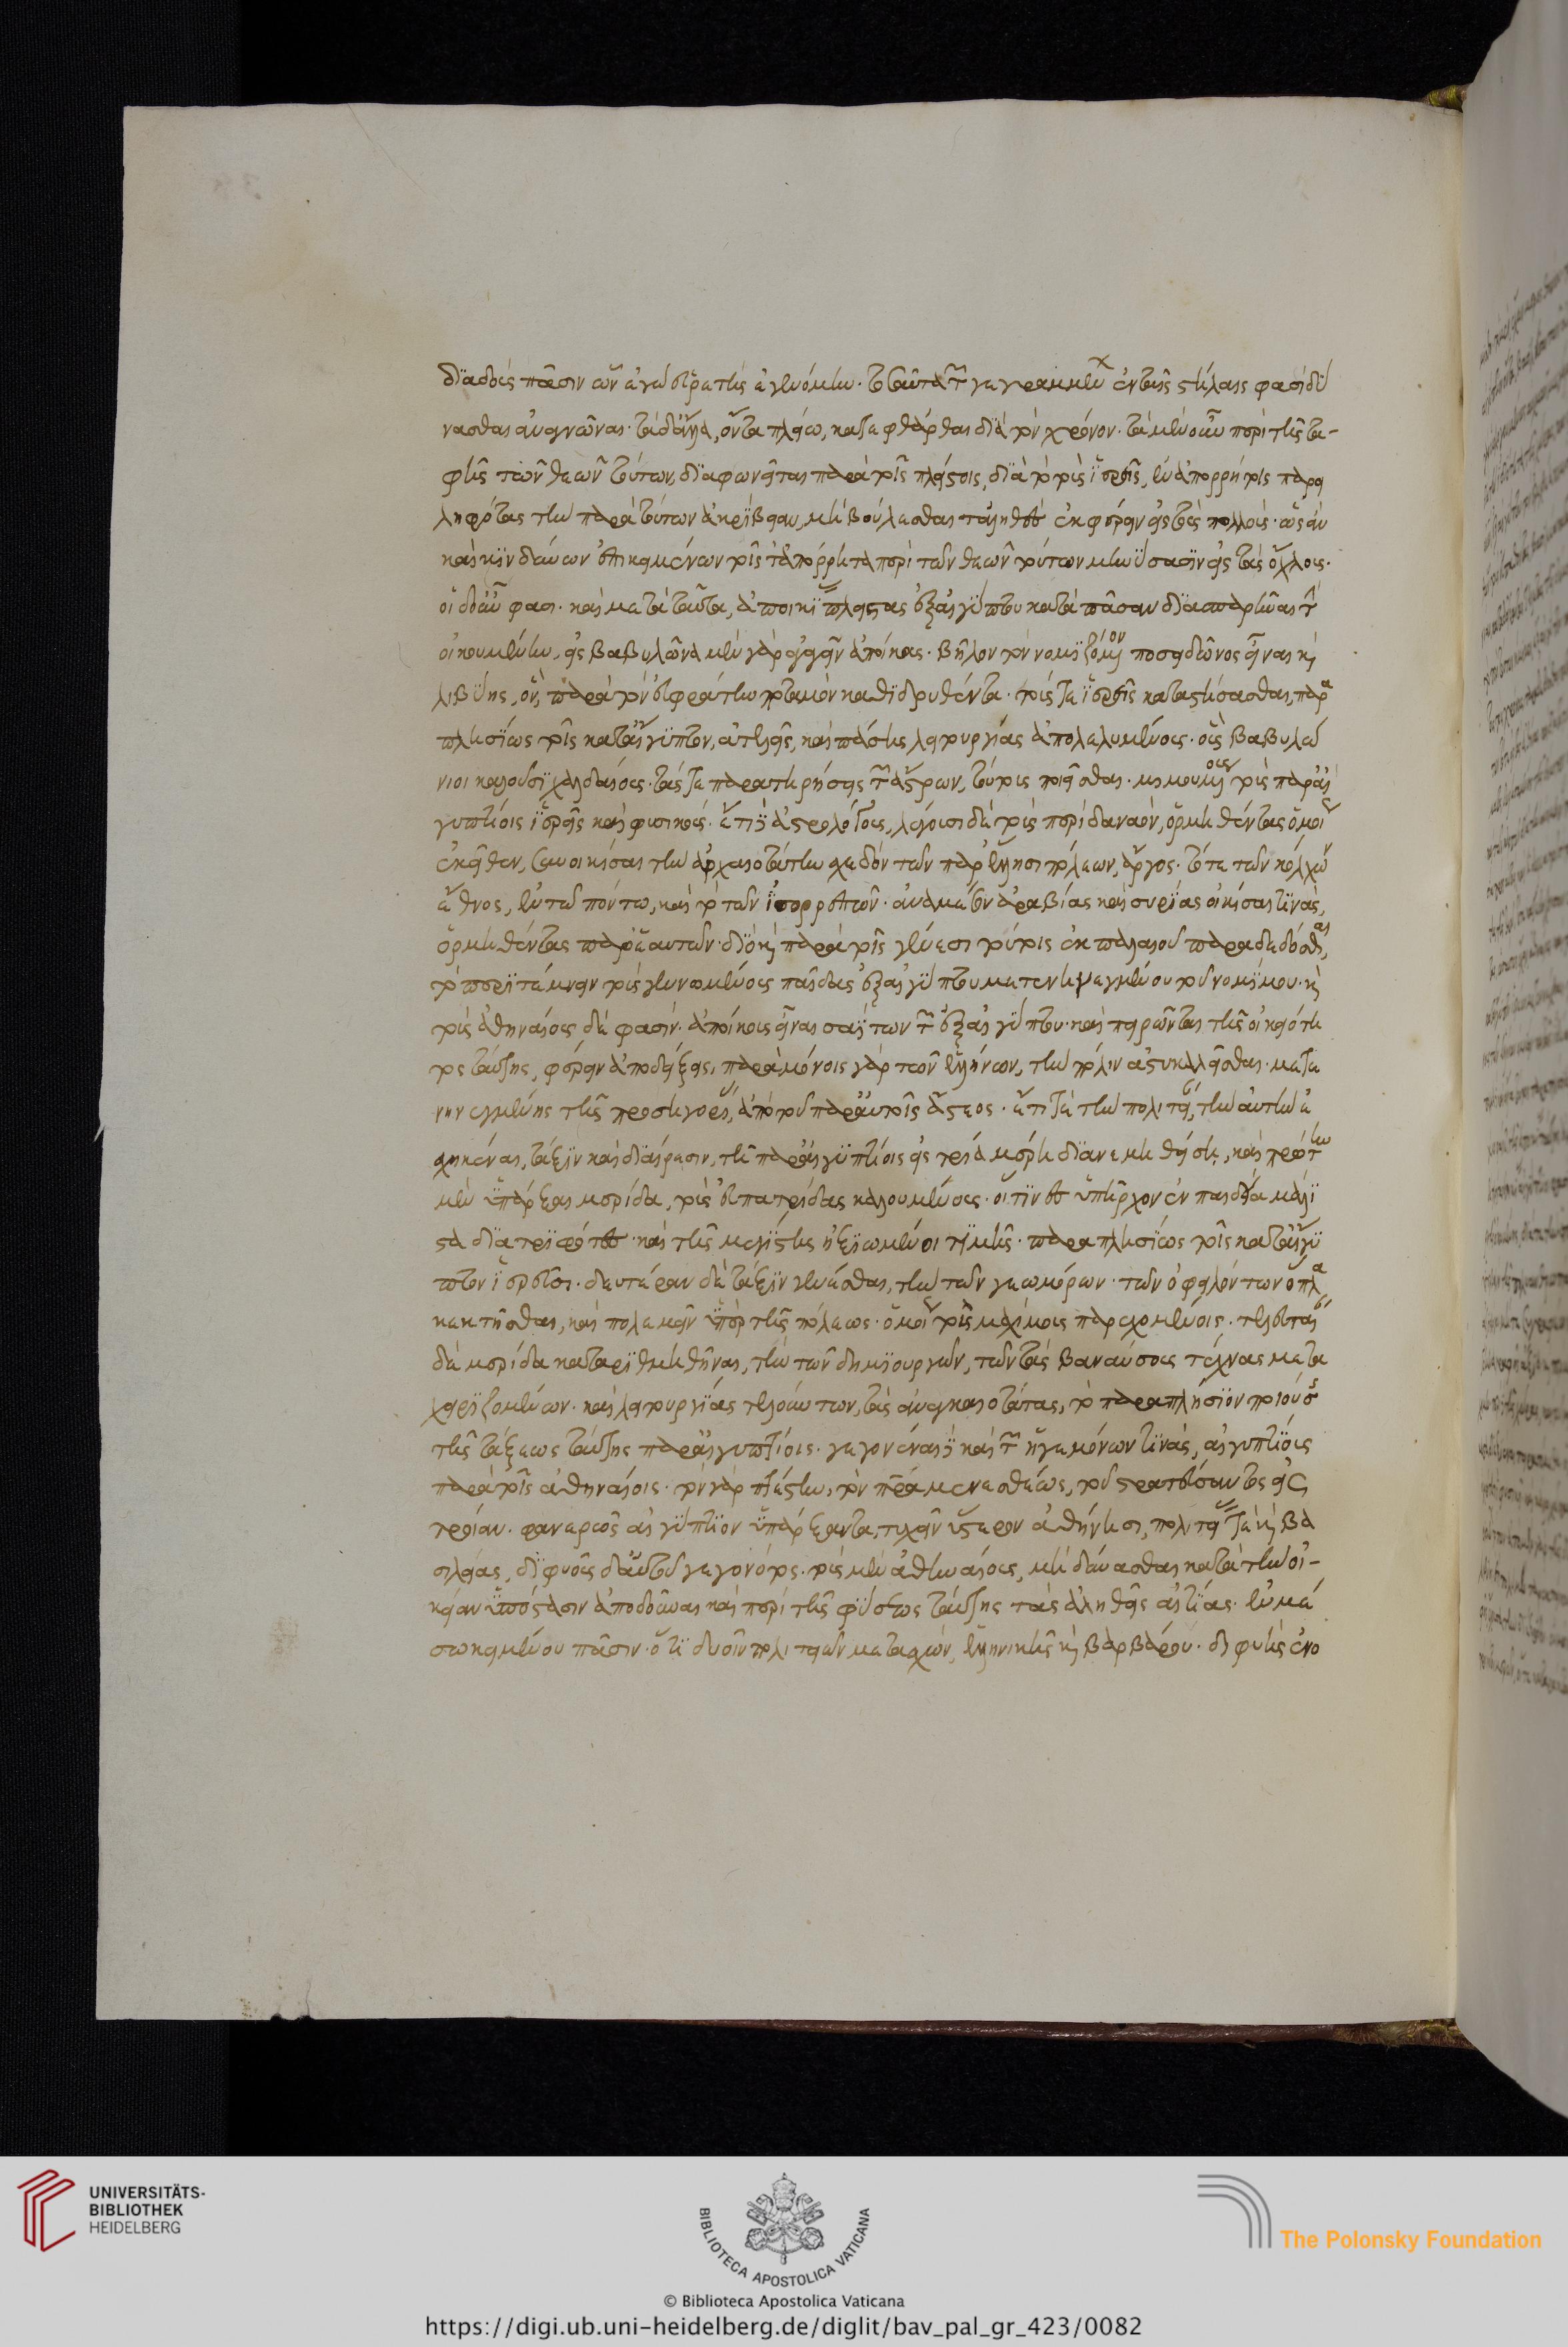 διαδοὺς πᾶσιν ὧν ἐγὼ εὑρετὴς ἐγενόμην. τοσαῦτα τῶν γεγραμμένων ἐν ταῖς στήλαις φασὶ δύ
νασθαι ἀναγνῶναι. τὰ δ' ἄλλα, ὄντα πλείω, κατεφθάρθαι διὰ τὸν χρόνον. τὰ μὲν οὖν περὶ τῆς τα-
φῆς τῶν θεῶν τούτων, διαφωνεῖται παρὰ τοῖς πλείστοις, διὰ τὸ τοὺς ἱερεῖς, ἐν ἀπορρήτοις παρει
ληφότας τὴν παρὰ τούτων ἀκρίβειαν, μὴ βούλεσθαι τἀληθὲς ἐκφέρειν εἰς τοὺς πολλούς. ὡς ἂν
καὶ κινδύνων ἐπικειμένων τοῖς τἀπόρρητα περὶ τῶν θεῶν τούτων μηνύσασιν εἰς τοὺς ὄχλους.
οἱ δ' οὖν φασι. καὶ μετὰ ταῦτα, ἀποικίας πλείστας ἐξ αἰγύπτου κατὰ πᾶσαν διασπαρῆναι τὴν
οἰκουμένην. εἰς βαβυλῶνα μὲν γὰρ ἀγαγεῖν ἀποίκους. βῆλον τὸν νομιζόμενον ποσειδῶνος εἶναι καὶ
λιβύης. ὃν παρὰ τὸν εὐφράτην ποταμὸν καθιδρυθέντα. τούς τε ἱερεῖς καταστήσασθαι, παρα
πλησίως τοῖς κατ' αἴγυπτον, ἀτελεῖς, καὶ πάσης λειτουργίας ἀπολελυμένους. οὓς βαβυλώ
νιοι καλοῦσι χαλδαίους. τάς τε παρατηρήσεις τῶν ἄστρων, τούτους ποιεῖσθαι. μιμουμένους τοὺς παρ' αἰ
γυπτίοις ἱερεῖς καὶ φυσικούς. ἔτι δὲ ἀστρολόγους, λέγουσι δὲ τοὺς περὶ δαναὸν, ὁρμηθέντας ὁμοίως
ἐκεῖθεν, συνοικίσαι τὴν ἀρχαιοτάτην σχεδὸν τῶν παρ' ἕλλησι πόλεων, ἄργος. τό τε τῶν κόλχων
ἔθνος, ἐν τῷ πόντῳ, καὶ τὸ τῶν ἰουδαίων. ἀνὰ μέσον ἀραβίας καὶ συρίας οἰκίσαι τινὰς,
ὁρμηθέντας παρ' ἑαυτῶν. διὸ καὶ παρὰ τοῖς γένεσι τούτοις ἐκ παλαιοῦ παραδεδόσθαι,
τὸ περιτέμνειν τοὺς γεννωμένους παῖδας ἐξ αἰγύπτου μετενηνεγμένου τοῦ νομίμου. καὶ
τοὺς ἀθηναίους δέ φασιν. ἀποίκους εἶναι σαϊτῶν τῶν ἐξ αἰγύπτου. καὶ πειρῶνται τῆς οἰκειότη
τος ταύτης, φέρειν ἀποδείξεις, παρὰ μόνοις γὰρ τῶν ἑλλήνων, τὴν πόλιν ἄστυ καλεῖσθαι. μετε
νηνεγμένης τῆς προσηγορίας, ἀπὸ τοῦ παρ' αὐτοῖς ἄστεος. ἔτι τὲ τὴν πολιτείαν, τὴν αὐτὴν ἐ
σχηκέναι, τάξιν καὶ διαίρεσιν, τῇ παρ' αἰγυπτίοις εἰς τρία μέρη διανεμηθείσῃ, καὶ πρώτην
μὲν ὑπάρξαι μερίδα, τοὺς εὐπατρίδας καλουμένους. οἵτινες ὑπῆρχον ἐν παιδείᾳ μάλι
στα διατετριφότες. καὶ τῆς μεγίστης ἠξιωμένοι τιμῆς. παραπλησίως τοῖς κατ' αἴγυ
πτον ἱερεῦσι. δευτέραν δὲ τάξιν γενέσθαι, τὴν τῶν γεωμόρων. τῶν ὀφειλόντων ὅπλα
κεκτῆσθαι, καὶ πολεμεῖν ὑπὲρ τῆς πόλεως. ὁμοίως τοῖς μαχίμοις παρεχομένοις. τελευταίαν
δὲ μερίδα καταριθμηθῆναι, τὴν τῶν δημιουργῶν, τῶν τὰς βαναύσους τέχνας μετα
χειριζομένων. καὶ λειτουργίας τελούντων, τὰς ἀναγκαιοτάτας, τὸ παραπλήσιον ποιούσης
τῆς τάξεως ταύτης παρ' αἰγυπτίοις. γεγονέναι δὲ καὶ τῶν ἡγεμόνων τινὰς, αἰγυπτίους
παρὰ τοῖς ἀθηναίοις. τὸν γὰρ πετήν, τὸν πατέρα μενεσθέως, τοῦ στρατεύσαντος εἰς
τροίαν. φανερῶς αἰγύπτιον ὑπάρξαντα, τυχεῖν ὕστερον ἀθήνησι, πολιτείας τε καὶ βα
σιλείας, διφυοῦς δ' αὐτοῦ γεγονότος. τοὺς μὲν ἀθηναίους, μὴ δύνασθαι κατὰ τὴν οἰ-
κείαν ὑπόστασιν ἀποδοῦναι καὶ περὶ τῆς φύσεως ταύτης τὰς ἀληθεῖς αἰτίας. ἐν μέ
σῳ κειμένου πᾶσιν. ὅτι δυοῖν πολιτειῶν μετασχών, ἑλληνικῆς καὶ βαρβάρου. διφυὴς ἐνο
UNIVERSITÄTS-
BIBLIOTHEK
HEIDELBERG
BIBLIOTECA APOSTOLICA VATICANA
© Biblioteca Apostolica Vaticana
The Polonsky Foundation
https://digi.ub.uni-heidelberg.de/diglit/bav_pal_gr_423/0082